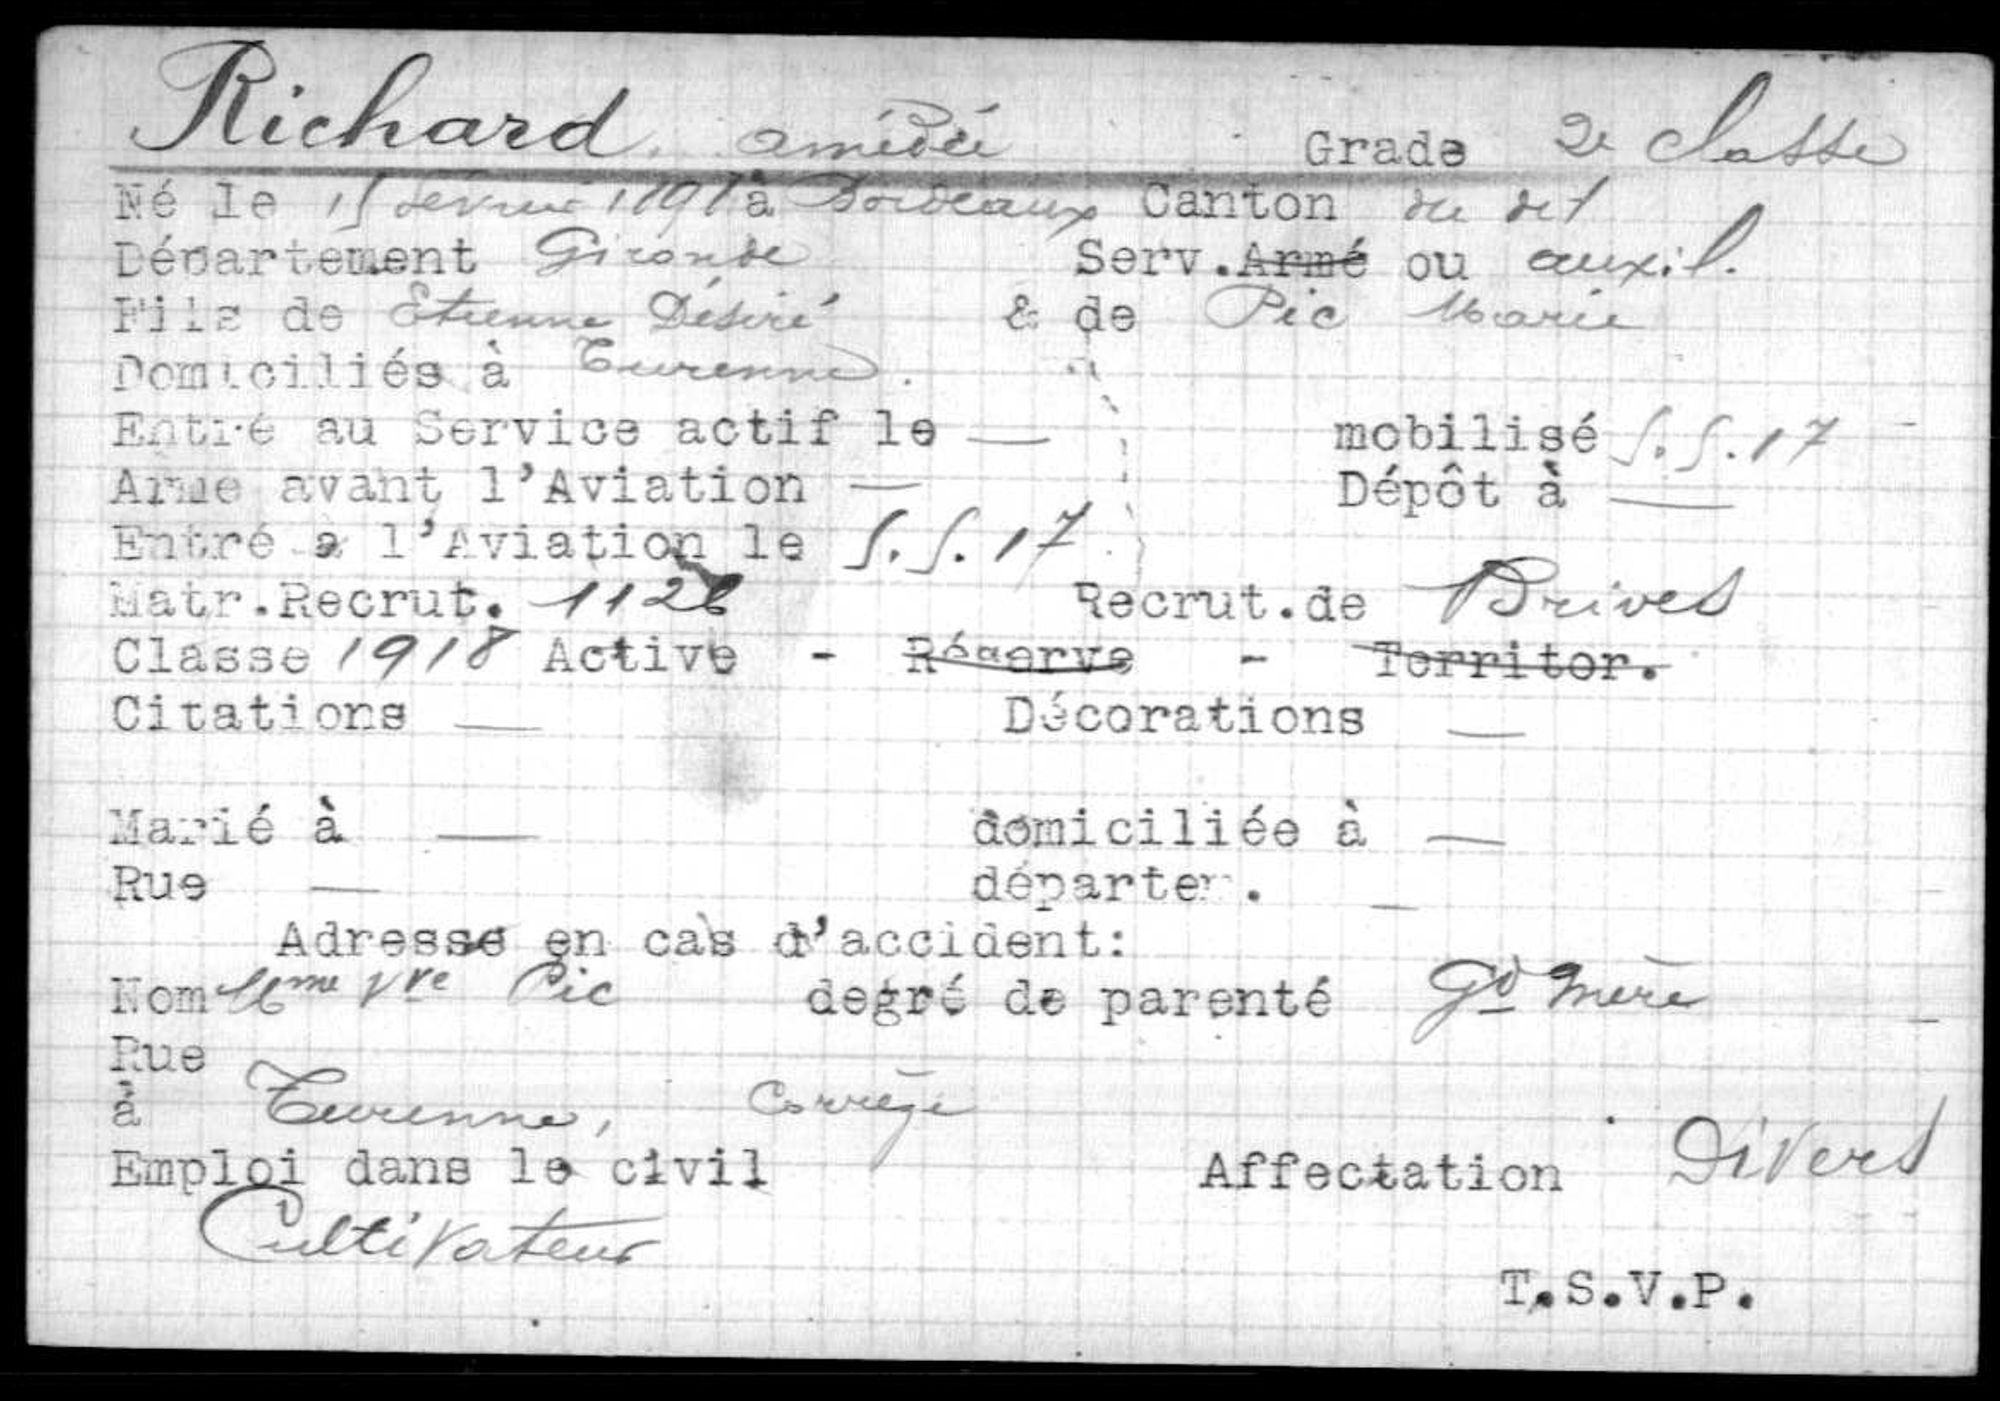 Richard Amédée Grade 2e classe
Né le 15 février 1898 à Bordeaux Canton du dit
Département Gironde Serv. Armé ou auxil.
Fils de Etienne Désiré & de Pic Marie
Domiciliés à Turenne.
Entré au Service actif le — mobilisé 5.5.17
Arme avant l'Aviation — Dépôt à —
Entré a l'Aviation le 5.5.17
Matr.Recrut. 1128 Recrut.de Brives
Classe 1918 Active - Réserve - Territor.
Citations — Décorations —
Marié à — domiciliée à —
Rue — départem. —
Adresse en cas d'accident:
Nom Mme Vve Pic degré de parenté Gd mère
Rue
à Turenne, Corrèze
Emploi dans le civil Affectation Divers
Cultivateur
T.S.V.P.